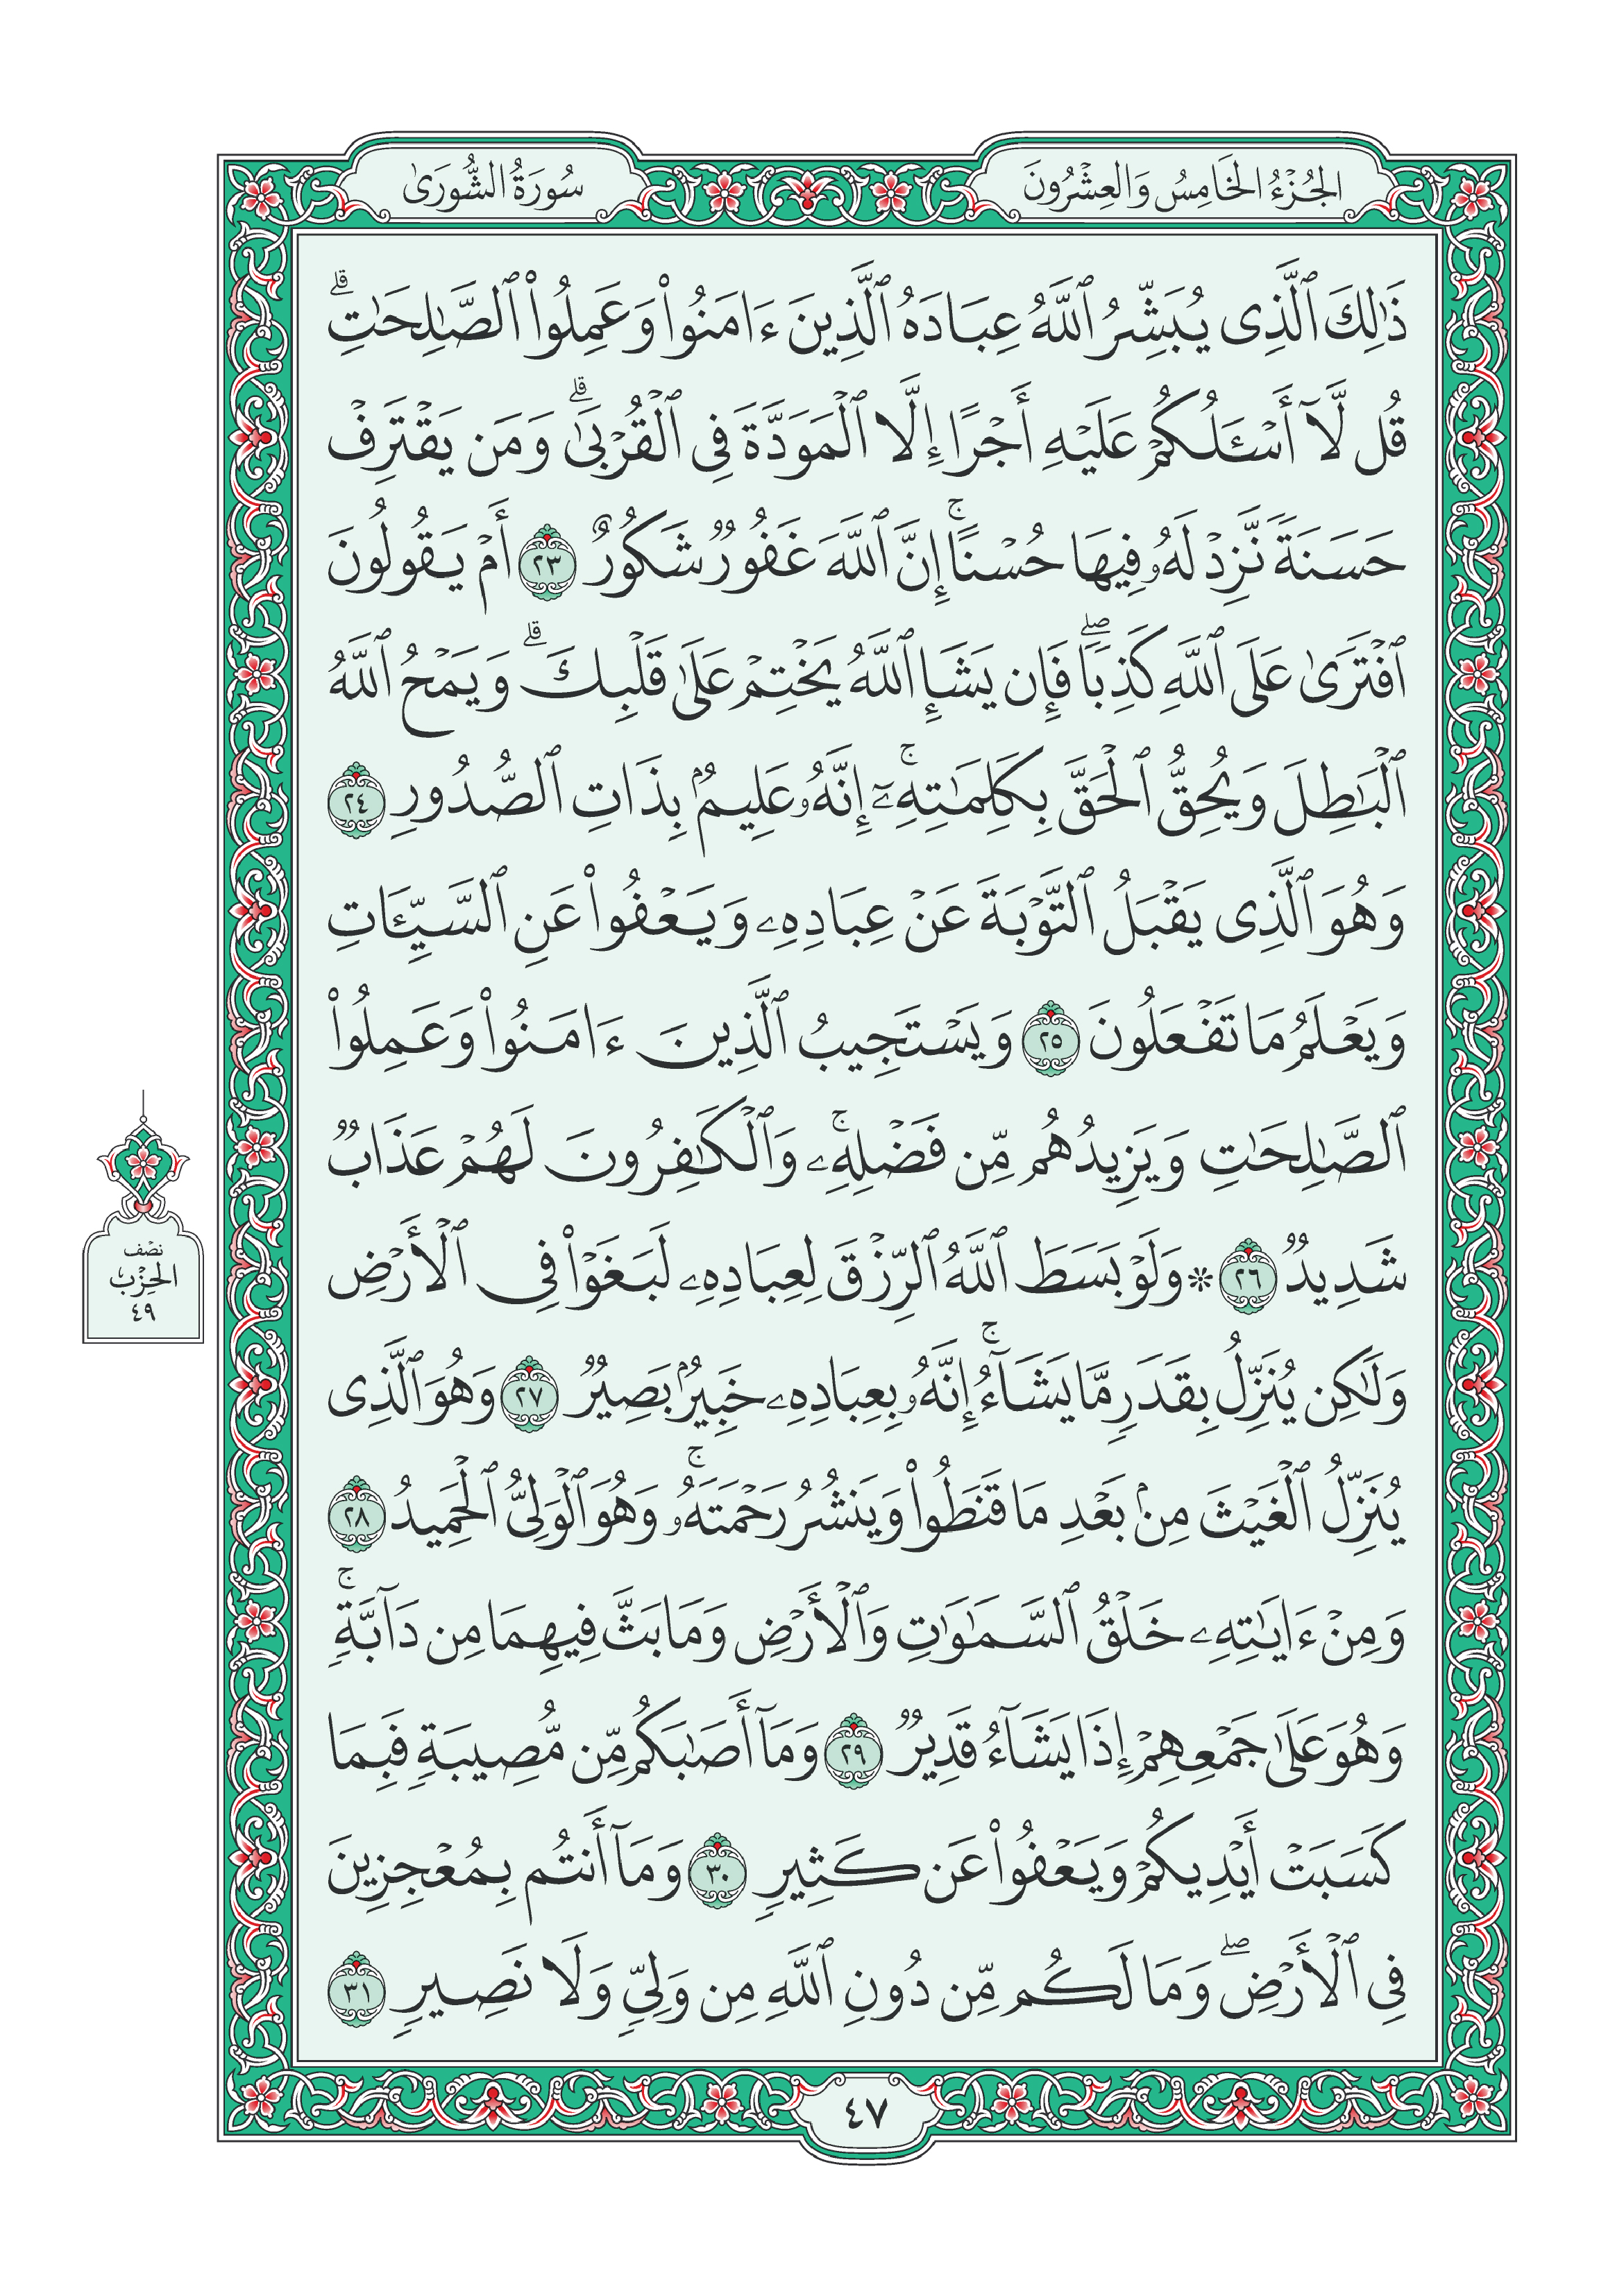 الجُزْءُ الخَامِسُ وَالعِشْرُونَ
سُورَةُ الشُّورَىٰ
ذَٰلِكَ ٱلَّذِى يُبَشِّرُ ٱللَّهُ عِبَادَهُ ٱلَّذِينَ ءَامَنُوا۟ وَعَمِلُوا۟ ٱلصَّٰلِحَٰتِۗ
قُل لَّآ أَسْـَٔلُكُمْ عَلَيْهِ أَجْرًا إِلَّا ٱلْمَوَدَّةَ فِى ٱلْقُرْبَىٰۗ وَمَن يَقْتَرِفْ
حَسَنَةً نَّزِدْ لَهُۥ فِيهَا حُسْنًاۚ إِنَّ ٱللَّهَ غَفُورٌ شَكُورٌ ٢٣ أَمْ يَقُولُونَ
ٱفْتَرَىٰ عَلَى ٱللَّهِ كَذِبًاۖ فَإِن يَشَإِ ٱللَّهُ يَخْتِمْ عَلَىٰ قَلْبِكَۗ وَيَمْحُ ٱللَّهُ
ٱلْبَٰطِلَ وَيُحِقُّ ٱلْحَقَّ بِكَلِمَٰتِهِۦٓۚ إِنَّهُۥ عَلِيمٌۢ بِذَاتِ ٱلصُّدُورِ ٢٤
وَهُوَ ٱلَّذِى يَقْبَلُ ٱلتَّوْبَةَ عَنْ عِبَادِهِۦ وَيَعْفُوا۟ عَنِ ٱلسَّيِّـَٔاتِ
وَيَعْلَمُ مَا تَفْعَلُونَ ٢٥ وَيَسْتَجِيبُ ٱلَّذِينَ ءَامَنُوا۟ وَعَمِلُوا۟
ٱلصَّٰلِحَٰتِ وَيَزِيدُهُم مِّن فَضْلِهِۦۚ وَٱلْكَٰفِرُونَ لَهُمْ عَذَابٌ
شَدِيدٌ ٢٦ ۞ وَلَوْ بَسَطَ ٱللَّهُ ٱلرِّزْقَ لِعِبَادِهِۦ لَبَغَوْا۟ فِى ٱلْأَرْضِ
وَلَٰكِن يُنَزِّلُ بِقَدَرٍ مَّا يَشَآءُۚ إِنَّهُۥ بِعِبَادِهِۦ خَبِيرٌۢ بَصِيرٌ ٢٧ وَهُوَ ٱلَّذِى
يُنَزِّلُ ٱلْغَيْثَ مِنۢ بَعْدِ مَا قَنَطُوا۟ وَيَنشُرُ رَحْمَتَهُۥۚ وَهُوَ ٱلْوَلِىُّ ٱلْحَمِيدُ ٢٨
وَمِنْ ءَايَٰتِهِۦ خَلْقُ ٱلسَّمَٰوَٰتِ وَٱلْأَرْضِ وَمَا بَثَّ فِيهِمَا مِن دَآبَّةٍۚ
وَهُوَ عَلَىٰ جَمْعِهِمْ إِذَا يَشَآءُ قَدِيرٌ ٢٩ وَمَآ أَصَٰبَكُم مِّن مُّصِيبَةٍ فَبِمَا
كَسَبَتْ أَيْدِيكُمْ وَيَعْفُوا۟ عَن كَثِيرٍ ٣٠ وَمَآ أَنتُم بِمُعْجِزِينَ
فِى ٱلْأَرْضِۖ وَمَا لَكُم مِّن دُونِ ٱللَّهِ مِن وَلِىٍّ وَلَا نَصِيرٍ ٣١
نصف
الحِزْب
٤٩
٤٧